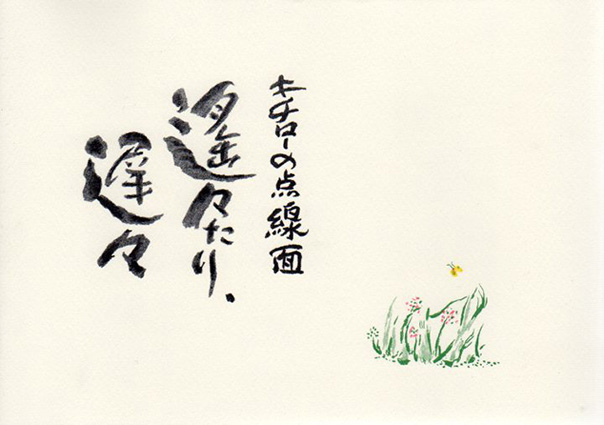 キチローの点線面
遙々たり、
遅々